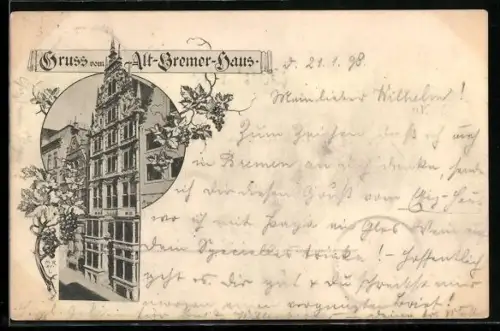 Gruss vom Alt-Bremer-Haus.
d. 21.1.98.
Mein lieber Wilhelm!
Zum Zeichen, daß ich auch
in Bremen an dich denke, sende
ich dir diesen Gruß vom
wo ich mit ein Glas Wein
dem ! – Hoffentlich
geht es dir gut & du schreibst mir
morgen einen vergnügten Brief!